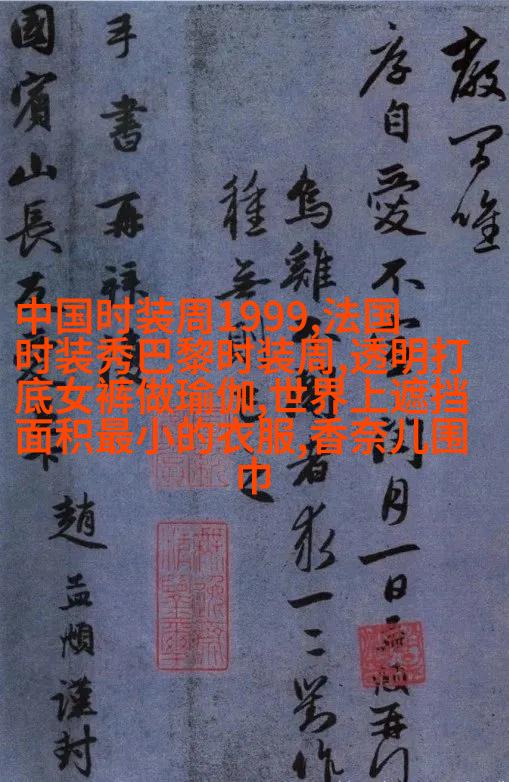 中国时装周1999,法国
时装秀巴黎时装周,透明打
底女裤做瑜伽,世界上遮挡
面积最小的衣服,香奈儿围
巾
唯
序自愛不 閏月一日孟頫再
烏雞 者求一二對作
種無則
手書再拜
國賓山長
趙孟頫謹封